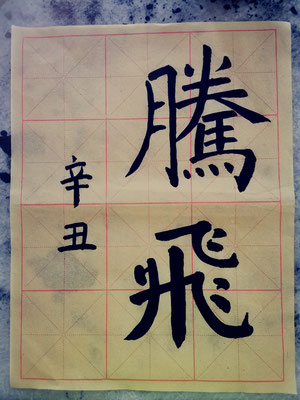 騰飛
辛丑